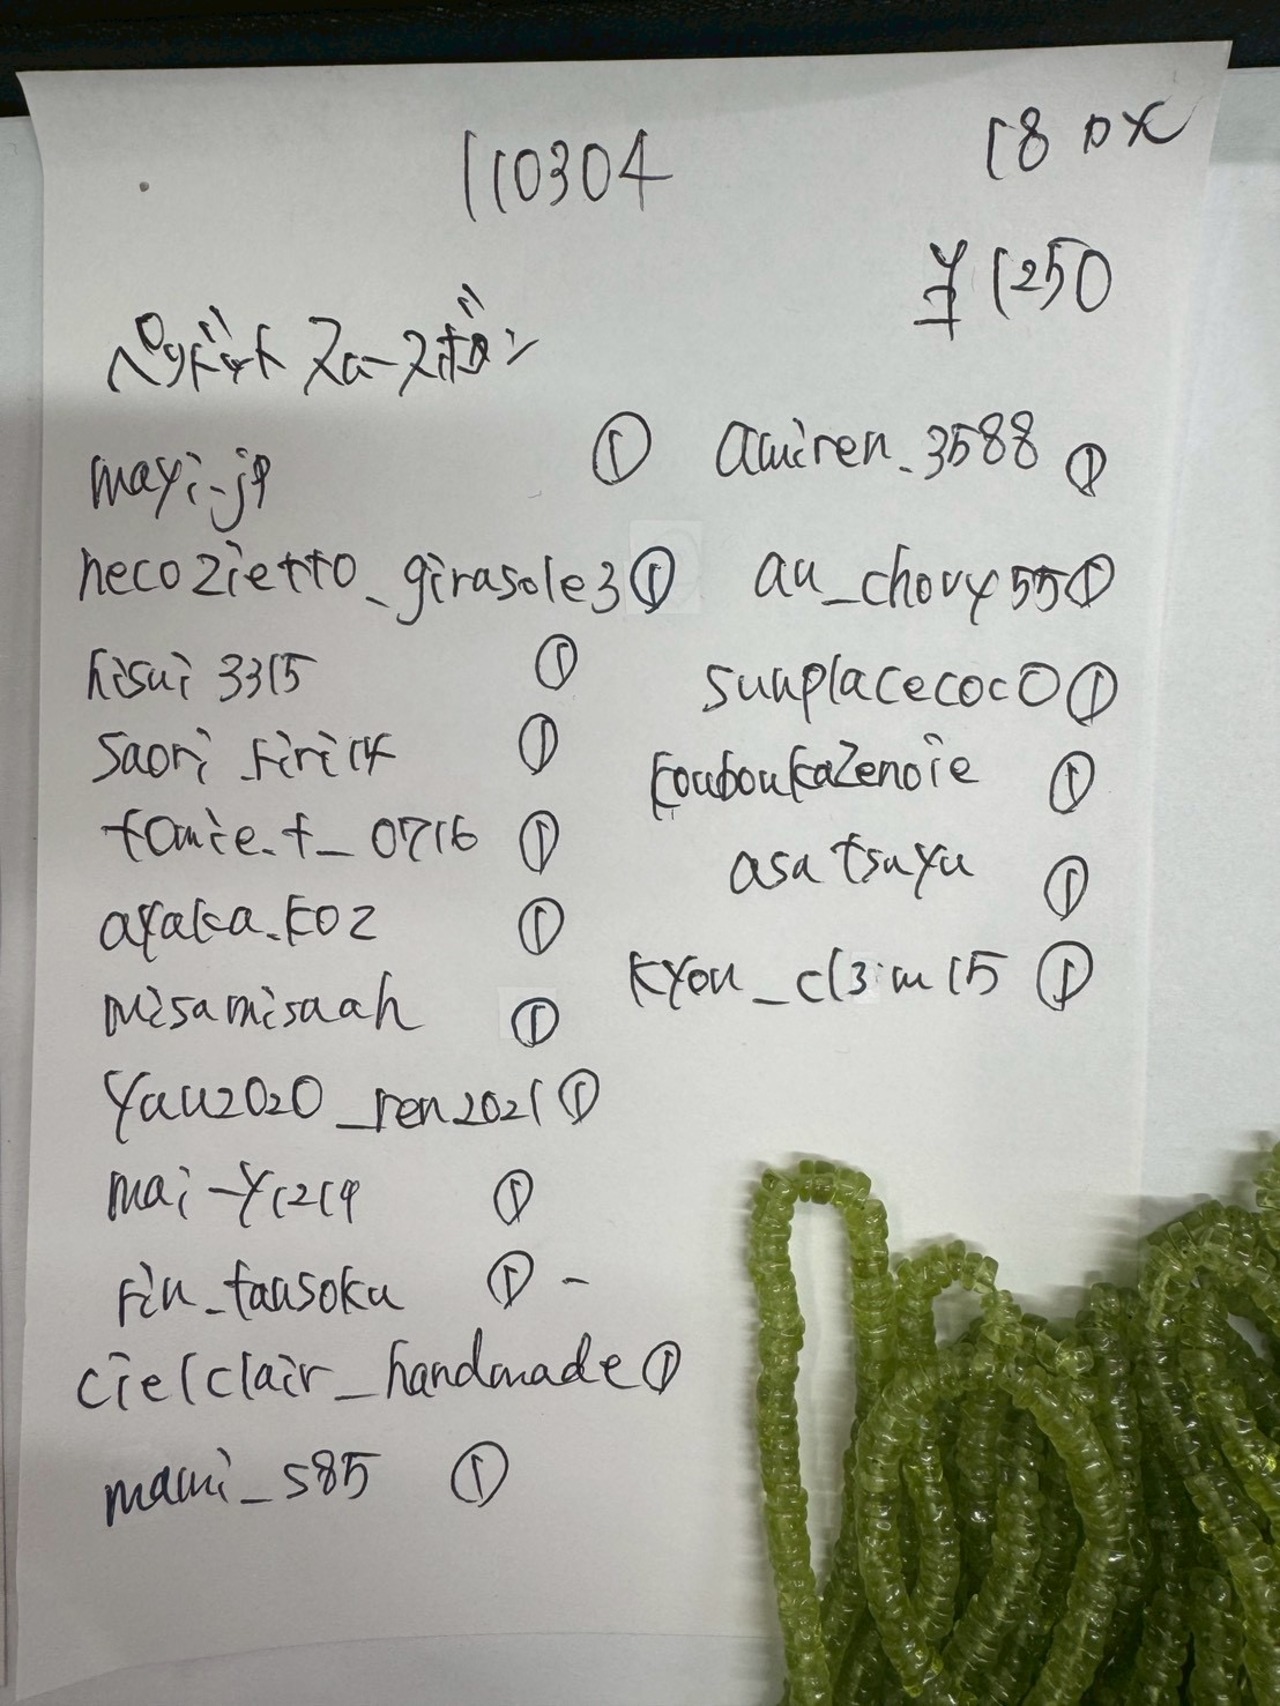 110304
18 px
¥1250
ペリドット スムースボタン
mayi-jp ①
necozietto_girasole3 ①
hisui3315 ①
saori_riri14 ①
tomie.t_0716 ①
ayaka.koz ①
misamisaah ①
yau2020_ren2021 ①
mai-y1219 ①
rin_tansoku ① -
cielclair_handmade ①
mami_s85 ①
amiren_3588 ①
au_chovy55 ①
sunplacecoco ①
kouboukazenoie ①
asatsuyu ①
kyou_cl3im15 ①